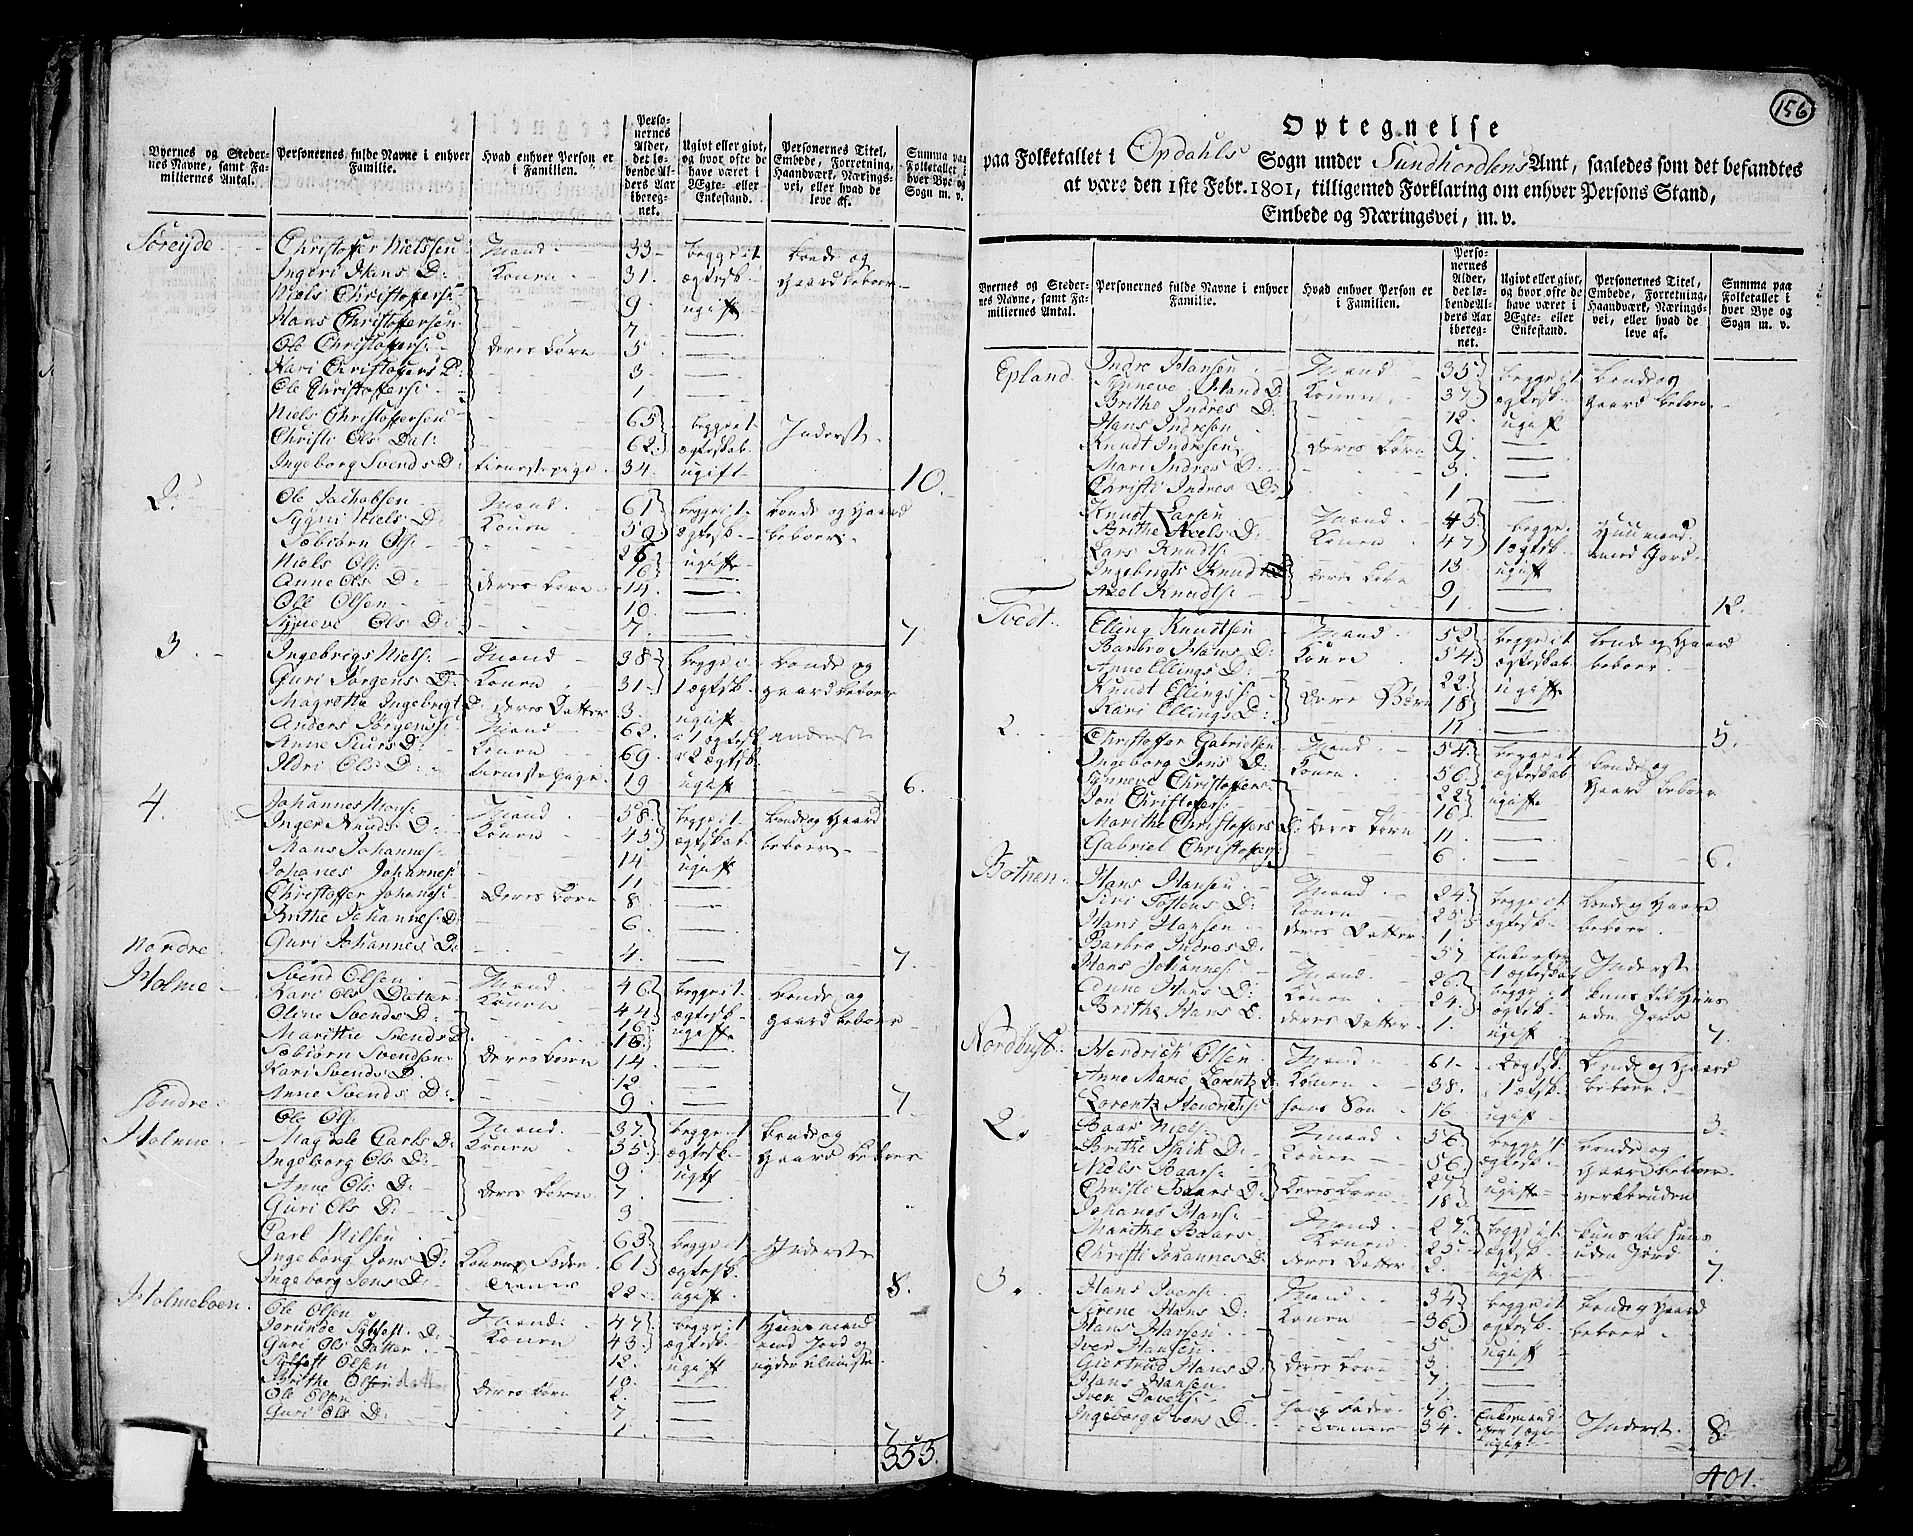 Byernes og Steder-
nes Navne, samt Fa-
miliernes Antal.
Personernes fulde Navne i enhver
Familie.
Hvad enhver Person er
i Familien.
Perso-
nernes
Alder,
det lø-
bende Al-
ders Aar
ibereg-
net.
Ugivt eller givt,
og hvor ofte de
have været i
Ægte- eller
Enkestand.
Personernes Titel,
Embede, Forretning,
Haandværk, Nærings-
vei, eller hvad de
leve af.
Summa paa
Folketallet i
hver Bye og
Sogn m. v.
Søreide Christoffer Nielssen Mand 33 begge i 1 bonde og
Ingeri Hans D: Konen 31. ægtesk. gaardbeboer
Niels Christoffers: 9 ugift
Hans Christoffersen 7
Ole Christoffers: deres børn 5
Kari Christoffers D: 3
Ole Christoffers: 1
Niels Christoffersen 65 begge i 1 Inderst
Christi Ols Dat: 62 ægteskab
Ingeborg Svends D: tienestepige 34. ugift 10.
2 Ole Jachobsen Mand 61 begge i 1 bonde og gaard
Sygni Niels D: Konen 59 ægtesk beboer
Sebiørn Ols: 26 ugifte
Niels Ols: 16
Anne Ols D: deres børn 14
Ole Olsen 10
Synneve Ols D: 7 7
3 Ingebrigt Niels: Mand 38 begge i bonde og
Guri Jørgens D: Konen 31 1 ægtesk gaardbeboer
Magrethe Ingebrigt D. deres datter 3. ugift
Anders Jørgens: Mand 62 1 ægtesk inderste
Anne Siurs D: Konen 69. 2 ægtesk.
Ildri Ols D: tienestepige 19 ugift 6.
4. Johannes Mons: Mand 58 begge i 1 bonde og gaard
Inger Knuds D: Konen 45 ægteskab beboer
Mons Johannes: 14 ugift
Johanes Johannes: 11
Christoffer Johanes: deres børn 8
Brithe Johannes D: 6
Guri Johannes D: 4 7.
Nordre
Holme Svend Olsen Mand 46 begge i 1 bonde og
Kari Ols Datter Konen 44 ægtesk. gaardbeboer
Oline Svends D: 16 ugifte
Marithe Svends D 16
Sebiørn Svendsen deres børn 14
Kari Svends D. 12
Anne Svends D: 9 7
Søndre
Holme Ole Ols: Mand 37. begge i 1 bonde og
Magdele Carls D: Konen 35 ægtesk. gaard beboer
Ingeborg Ols D: 9 ugift
Anne Ols: D: deres børn 7
Guri Ols D: 3
Carl Nilsen 63 begge i 1 Inderst
Ingeborg Jons D: Konens Fader 61 ægtesk.
Ingeborg Jens D: 22 ugift. 8.
Holmeboen Ole Olsen Mand: 47 begge i 1 Huusmand
Jorunde Sylfest D: Konen 43 ægtesk. med Jord og
Guri Ols Datter 12 ugift
Sylfest Olsen 10
Brithe Olsen datt deres børn 2
Ole Olsen 7
Guri Ols D: 1 7
355.
156
Optegnelse
paa Folketallet i Opdahls Sogn under Sundhordlens Amt, saaledes som det befandtes
at være den 1ste Febr. 1801, tilligemed Forklaring om enhver Persons Stand,
Embede og Næringsvei, m. v.
Byernes og Steder-
nes Navne, samt Fa-
miliernes Antal.
Personernes fulde Navne i enhver
Familie.
Hvad enhver Person er
i Familien.
Perso-
nernes
Alder,
det lø-
bende Al-
ders Aar
ibereg-
net.
Ugivt eller givt,
og hvor ofte de
have været i
Ægte- eller
Enkestand.
Personernes Titel,
Embede, Forretning,
Haandværk, Nærings-
vei, eller hvad de
leve af.
Summa paa
Folketallet i
hver Bye og
Sogn m. v.
Epland Indre Hansen Mand 35 begge i 1 bonde og
Synneve Amund D: Konen 37 ægtesk. gaard beboer
Brithe Indres D: 12. ugift
Hans Indresen 9
Knudt Indresen deres børn 7
Mari Indres D: 3
Christi Indres D: 1
Knudt Larsen Mand 45 begge i Huusmand
Brithe Axels D: Konen 47 1 ægtesk med Jord
Lars Knudts: 13 ugift
Ingebrigt Knudts deres børn 9
Axel Knudts: 1 12.
Tvedt Elling Knudtsen Mand 52 begge i 1 bonde og gaard
Barbro Hans D: Konen 54 ægteskab beboer
Anne Ellings D: 22 ugifte
Knudt Ellings: deres Børn 18
Kari Ellings D: 11 5.
2 Christoffer Gabrielsen Mand 54. begge i 1 bonde og
Ingeborg Jons D: Konen 50. ægteskab gaard beboer
Synneve Christoffers. 22 ugifte
Jon Christoffers: 16
Marithe Christoffers D: deres børn 11
Gabriel Christoffers: 6 6.
Botnen Hans Hansen Mand 24. begge i 1 bonde og gaard
Siri Tostens D: Konen 25 ægtesk. beboer.
Hans Hansen deres Datter 1.
Barbro Indres D: 57 Enke efter Inderst
Hans Johannes: Mand 26. 1 ægteskab
Anne Hans D: Konen 24. begge i 1
Brithe Hans D. deres Datter 1. ugift uden Jord 7.
Nordhust Hendrich Olsen Mand 61. ægtesk. bonde og gaard
Anne Marie Lorentz D. Konen 38. 1 ægtesk. beboer
Lorentz Hendrichs: hans Søn 16 ugift 3.
2. Baar Niels: Mand 56. begge i 1 bonde og
Brithe D: Konen 56. ægtesk. gaard beboer
Niels Baars: 27 ugifte
Christi Baars D. deres børn 18
Johanes Hans: Mand 27. begge i 1
Marithe Baars Konen 25 ægtesk. uden Jord
Christi Johannes D: deres Datter 2. ugift 7
3. Hans Ivers: Mand 34 begge i 1 bonde og gaard
Sirene Hans D: Konen 36 ægtesk. beboer
Hans Hansen 5 ugift
Iver Hansen 3
Giertrud Hans D: deres børn 7
Hans Hansen 1
Iven hans Fader 76. Enkemand Inderst
Ingeborg Ivens D: 34. ugift 8
401.